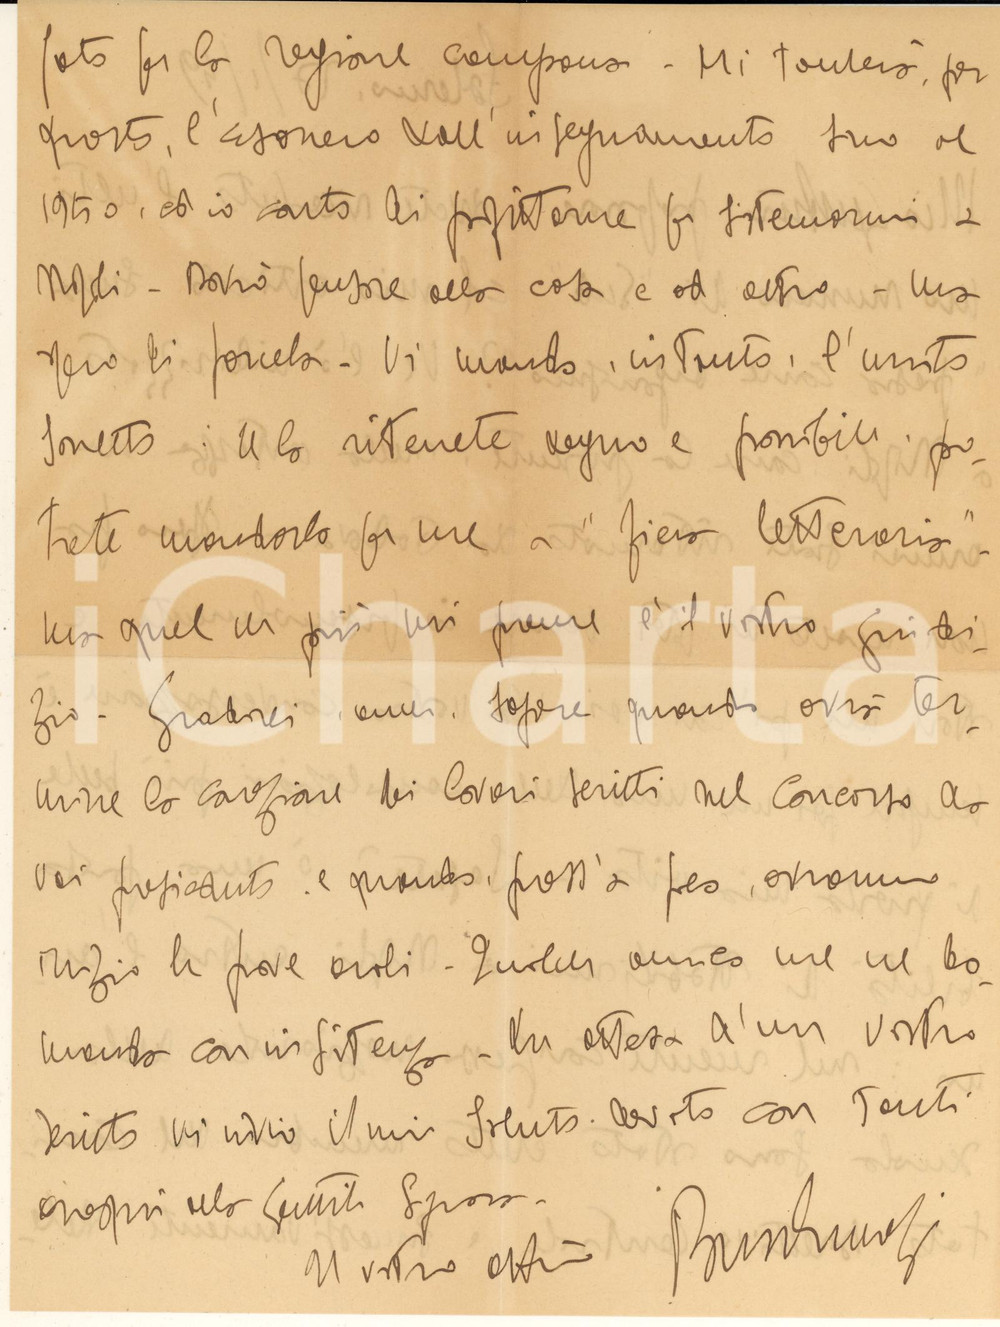 fato per la regione campana - Mi toccherà, per
questo, l'esonero dall'insegnamento sino al
1950, ed io conto di profittarne per sistemarmi a
Napoli - Dovrò pensare alla casa e ad altro - Ma
spero di farcela - Vi mando, intanto, l'unito
sonetto: se lo ritenete degno e possibile, po-
trete mandarlo per me a "Fiera letteraria" -
Ma quel che più mi preme è il vostro giudi-
zio - Gradirei, anzi, sapere quando avrà ter-
mine la correzione dei lavori scritti nel concorso da
voi presieduto e quando, press'a poco, avranno
inizio le prove orali - Qualche amico me ne do-
manda con insistenza - In attesa d'un vostro
scritto vi invio il mio saluto devoto con tanti
ossequi alla gentile Signora -
Il vostro aff.mo
iCharta